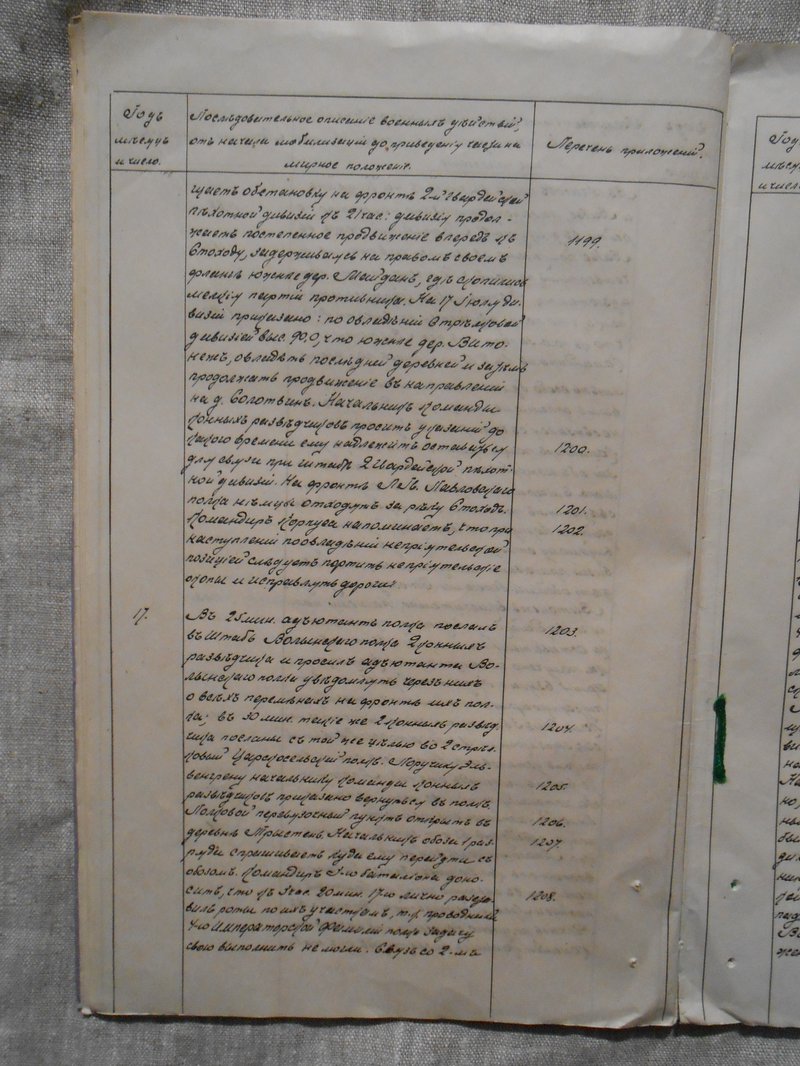 Годъ
мѣсяцъ
и число.
Послѣдовательное описаніе военныхъ дѣйствій,
отъ начала мобилизаціи до приведенія части на
мирное положеніе.
Перечень приложеній.
щаетъ обстановку на фронтѣ 2-й Гвардейской
пѣхотной дивизіи къ 21 час: дивизія продол-
жаетъ постепенное продвиженіе впередъ къ
Стоходу, задерживаясь на правомъ своемъ
1199.
флангѣ южнѣе дер. Майданъ, гдѣ скопились
мелкія партіи противника. На 17 Іюля ди-
визіи приказано: по овладѣніи Стрѣлковой
дивизіей выс. 90,0, что южнѣе дер. Вито-
нежъ, овладѣть послѣдней деревней и затѣмъ
продолжать продвиженіе въ направленіи
на д. Солотвинъ. Начальникъ команды
конныхъ развѣдчиковъ проситъ указаній до
какого времени ему надлежитъ оставаться
1200.
для связи при штабѣ 2 Гвардейской пѣхот-
ной дивизіи. На фронтѣ Л-Гв. Павловскаго
полка нѣмцы отходятъ за рѣку Стоходъ.
1201.
Командиръ Корпуса напоминаетъ, что при
1202.
наступленіи по овладѣніи непріятельской
позиціей слѣдуетъ портить непріятельскіе
окопы и исправлять дороги.
17.
Въ 25 мин. адъютантъ полка послалъ
въ штабъ Волынскаго полка 2 конныхъ
1203.
развѣдчика и просилъ адъютанта Во-
лынскаго полка увѣдомлять черезъ нихъ
о всѣхъ перемѣнахъ на фронтѣ ихъ пол-
ка; въ 30 мин. такіе же 2 конныхъ развѣд-
1204.
чика посланы съ той же цѣлью во 2 стрѣл-
ковый Царскосельскій полкъ. Поручику Эль-
венгрену начальнику команды конныхъ
развѣдчиковъ приказано вернуться въ полкъ.
1205.
Полковой перевязочный пунктъ открытъ въ
1206.
деревнѣ Трыстень. Начальникъ обоза 1 раз-
1207.
ряда спрашиваетъ куда ему перейти съ
обозомъ. Командиръ 3-го баталіона доно-
ситъ, что къ 3 час. 20 мин. 17-го лично развро-
1208.
вилъ роты по ихъ участкамъ, т.к. проводники
4-го Императорской Фамиліи полка задачу
свою выполнить не могли. Связь со 2-мъ
Годъ
мѣсяц
и число